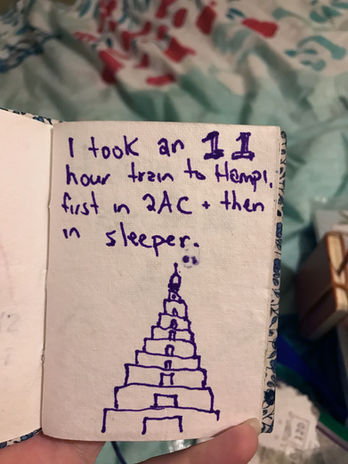 I took an 11
hour train to Hampi,
first in 2AC + then
in sleeper.